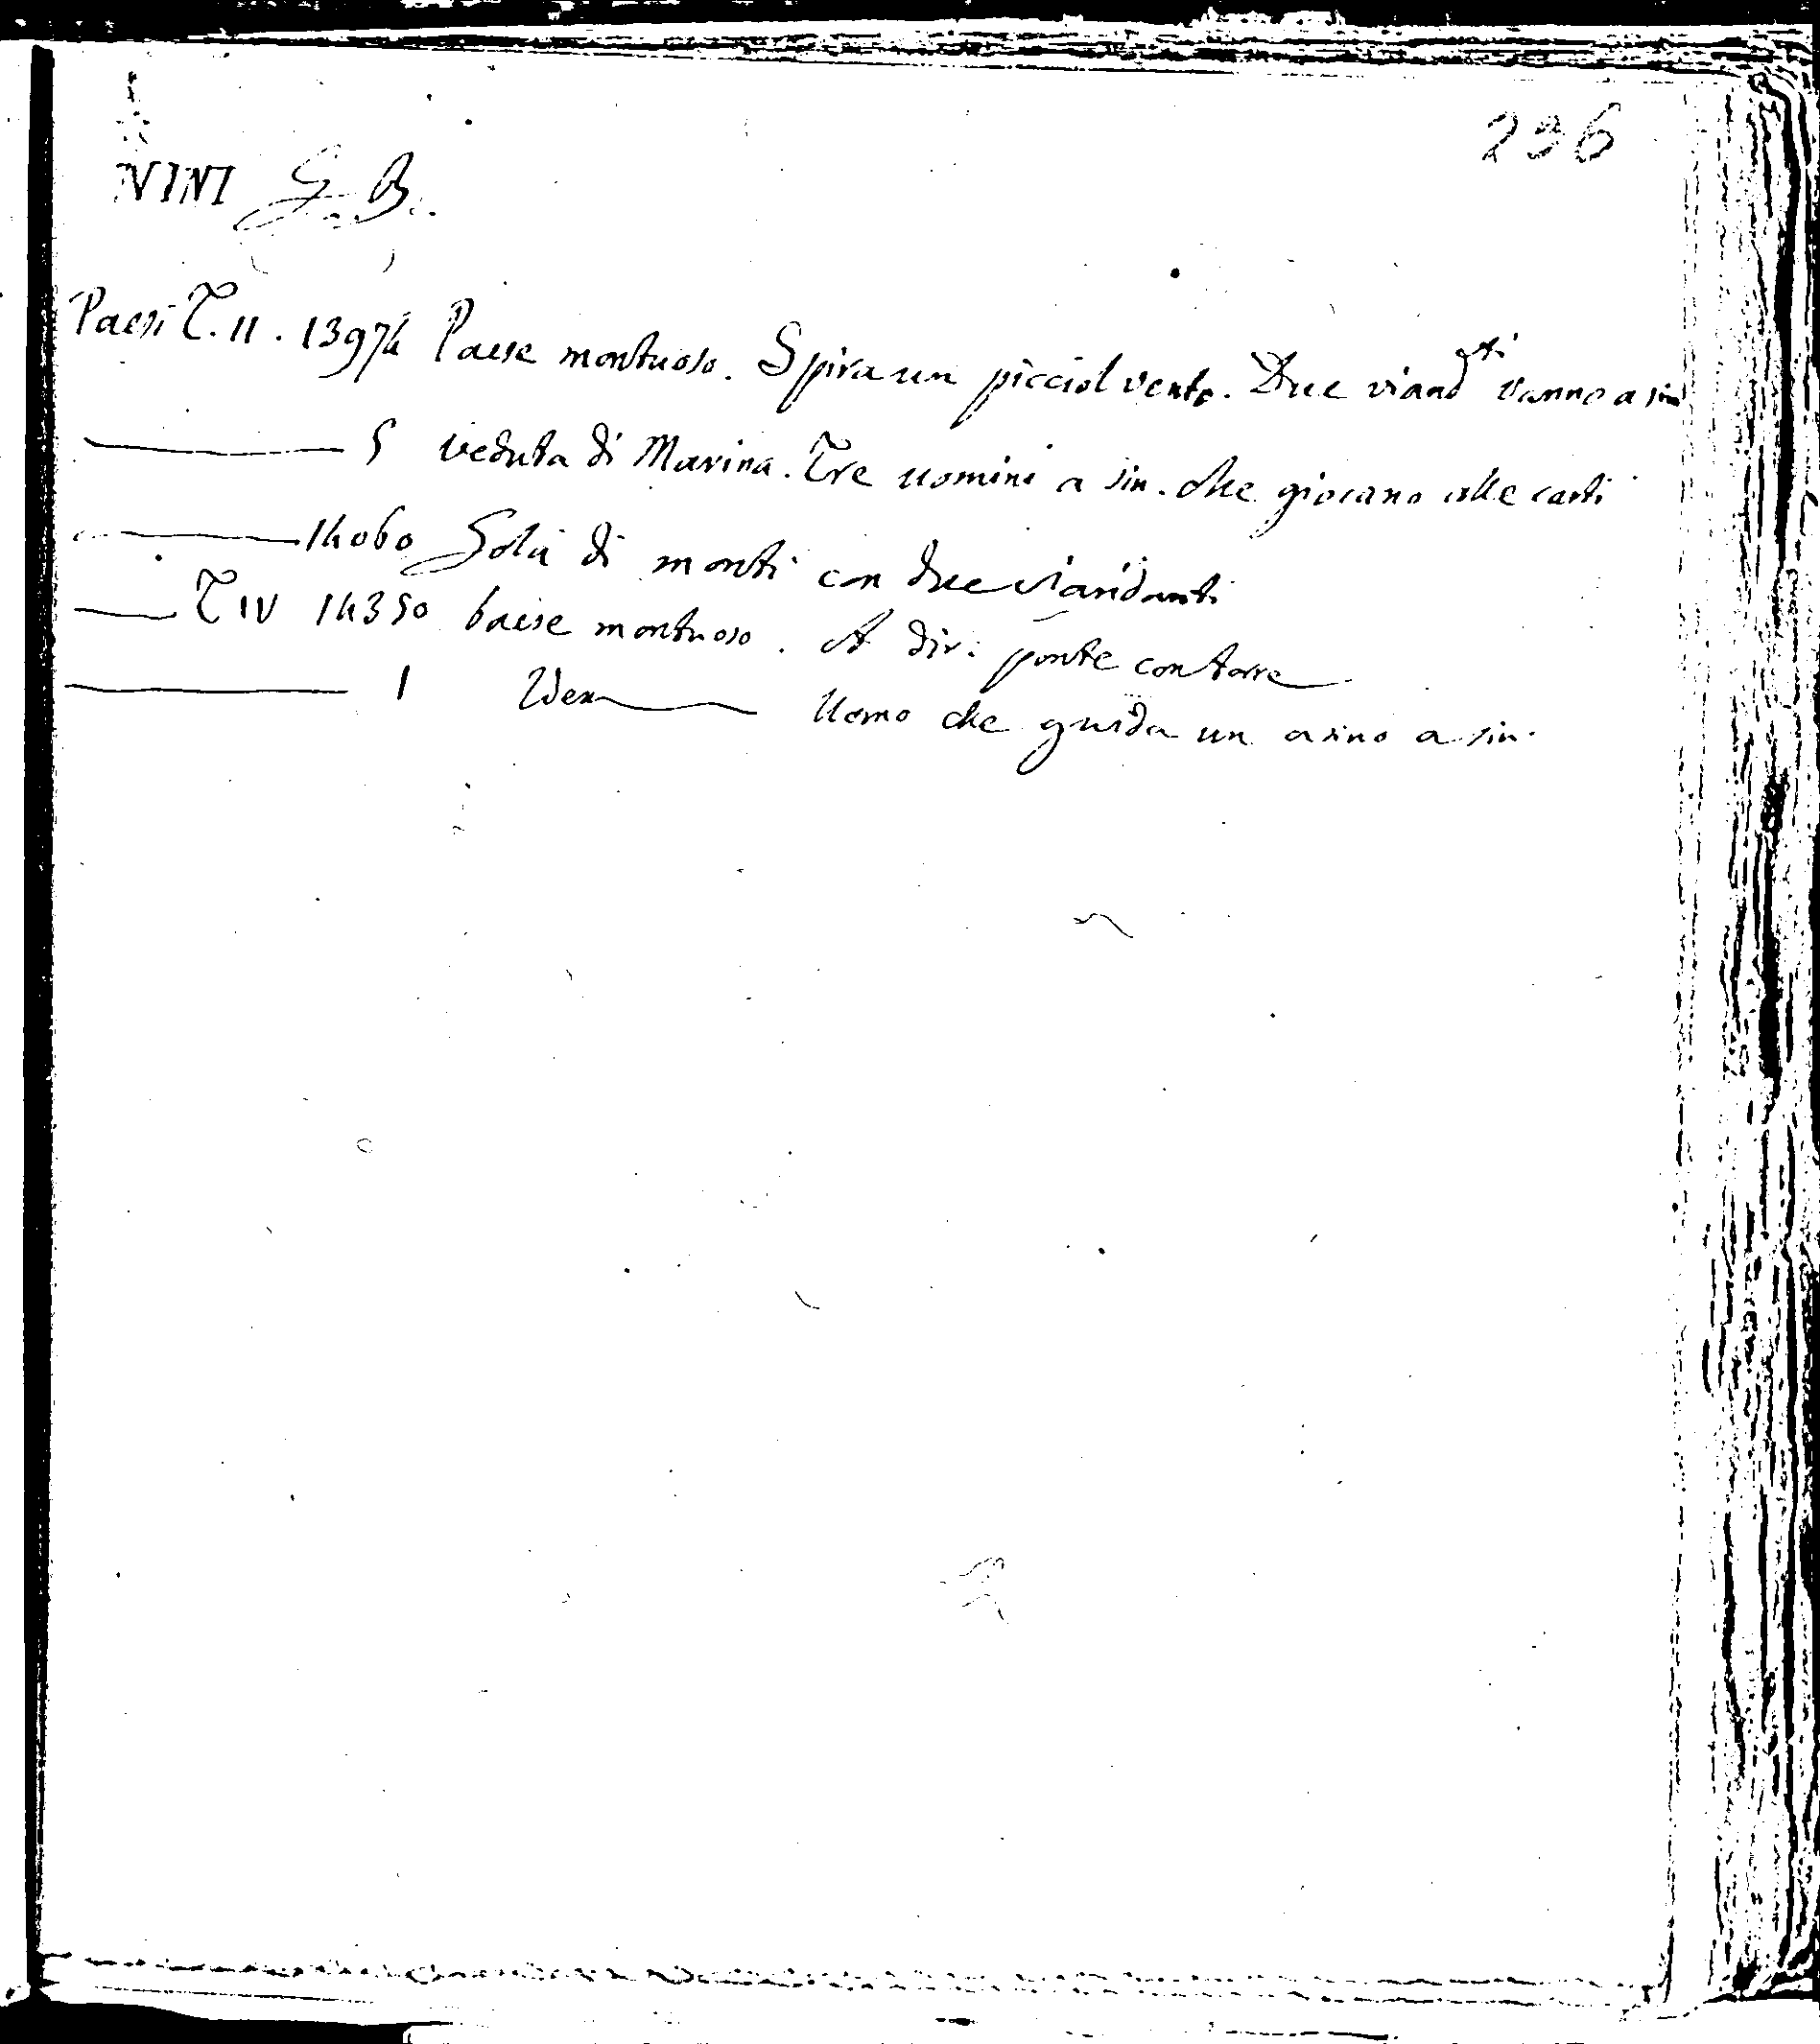 236
NINI G. B.
Paesi T. II. 13974 Paese montuoso. Spira un picciol vento. Due viand.ti vanno a sin
——— 5 veduta di Marina. Tre uomini a sin. che giocano alle carti
——— 14060 Gola di monti con due viandanti
—— T IV 14350 paese montuoso. A dir: ponte con torre
——— 1 Idem —— Uomo che guida un asino a sin.